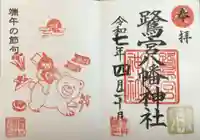 奉拝
鷺宮八幡神社
令和七年四月三十日
端午の節句